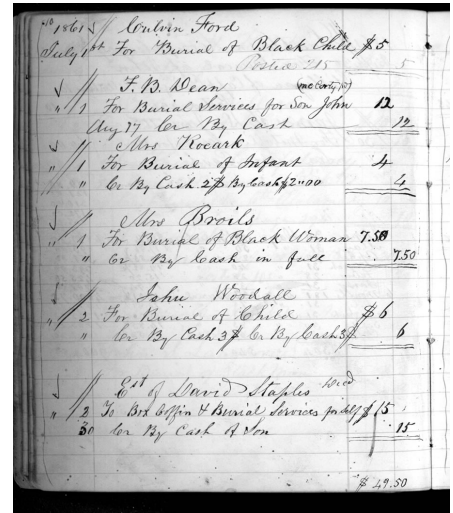 1861 Culvin Ford
July 1st For Burial of Black Child $5
Posted 215 5
F. B. Dean
" 1 For Burial Services for Son John 12
Aug 17 Cr By Cash 12
Mrs Roeark
" 1 For Burial of Infant 4
" Cr By Cash 2$ By Cash $2"00 4
Mrs Broils
" 1 For Burial of Black Woman 7.50
" Cr By Cash in full 7.50
John Woodall
" 2 For Burial of Child $6
" Cr By Cash 3$ Cr By Cash 3$ 6
Est of David Staples Decd
" 2 To Box Coffin & Burial Services for self $15
30 Cr By Cash of Son 15
$ 49.50